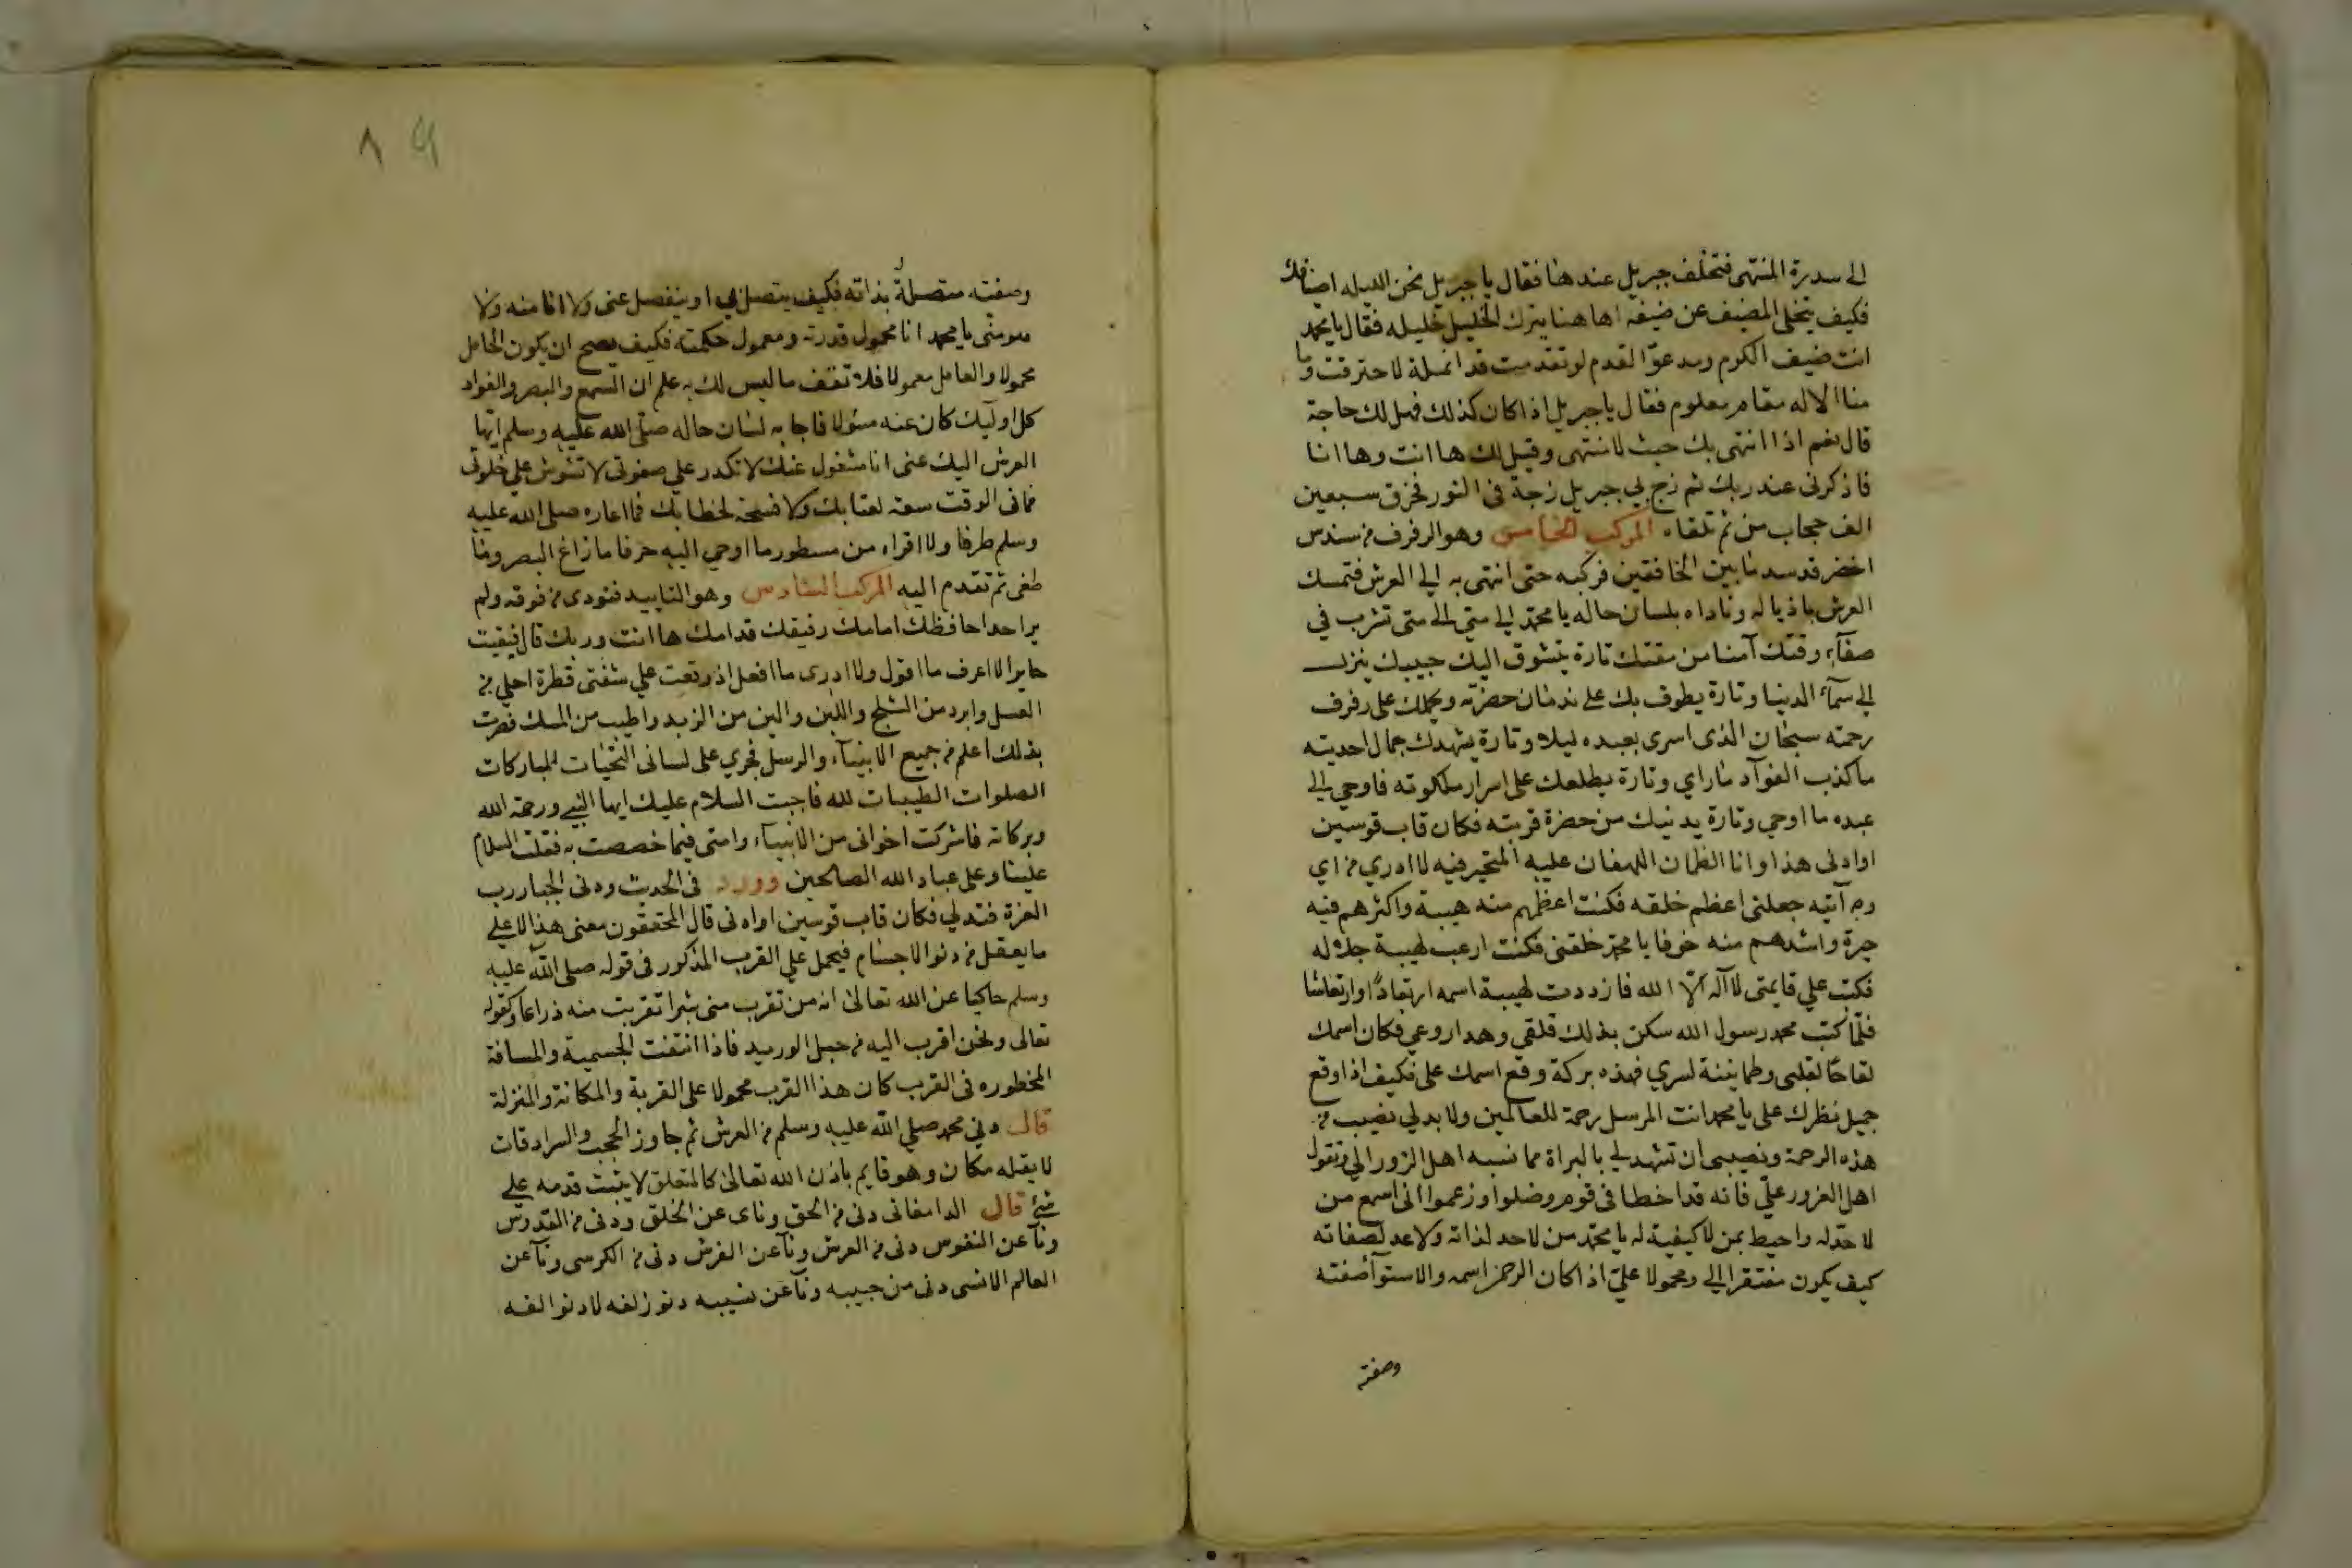 الى سدرة المنتهى فتخلف جبريل عندها فقال يا جبريل نحن الليله اضيافك
فكيف يتخلى المضيف عن ضيفه اهاهنا يترك الخليل خليله فقال يا محمد
انت ضيف الكرم ومدعوّ القدم لو تقدمت قدر انملة لاحترقت وما
منا الا له مقام معلوم فقال يا جبريل اذا كان كذلك فهل لك حاجة
قال نعم اذا انتهى بك حيث لا منتهى وقيل لك ها انت وها انا
فاذكرنى عند ربك ثم زج بي جبريل زجة فى النور فخرق سبعين
الف حجاب من ثم تلقاه المركب الخامس وهو الرفرف من سندس
اخضر قد سد ما بين الخافقين فركبه حتى انتهى به الى العرش فتمسك
العرش باذياله وناداه بلسان حاله يا محمد الى متى الى متى تشرب في
صفآء وقتك آمنا من مقتك تارة يتشوق اليك حبيبك ينزل
الى سمآء الدنيا وتارة يطوف بك على ندمان حضرته ويحملك على رفرف
رحمته سبحان الذى اسرى بعبده ليلا وتارة يشهدك جمال احديته
ما كذب الفوآد ما راي وتارة يطلعك على اسرار ملكوته فاوحي الى
عبده ما اوحي وتارة يدنيك من حضرة قربته فكان قاب قوسين
او ادنى هذا وانا الظمان اللهفان عليه المتحير فيه لا ادري من اي
وجه آتيه جعلنى اعظم خلقه فكنت اعظمهم منه هيبة واكثرهم فيه
حيرة واشدهم منه خوفا يا محمد خلقنى فكنت ارعب لهيبة جلاله
فكتب علي قايمتى لا آله الّا الله فازددت لهيبة اسمه ارتعادًا وارتعاشا
فلمّا كتب محمد رسول الله سكن بذلك قلقى وهدا روعي فكان اسمك
لقاحًا لقلبى وطماينة لسري فهذه بركة وقع اسمك على فكيف اذا وقع
جميل نظرك على يا محمد انت المرسل رحمة للعالمين ولا بد لي نصيب من
هذه الرحمة ونصيبى ان تشهد لي بالبراة مما نسبه اهل الزور الي وتقول
اهل الغرور عليّ فانه قد اخطا فى قوم وضلوا وزعموا انى اسع من
لا حدّ له واحيط بمن لا كيفية له يا محمد من لا حد لذاته ولا عد لصفاته
كيف يكون مفتقرا الي ومحمولا عليّ اذا كان الرحمن اسمه والاستوآ صفته
وصفته
وصفته متصلةٌ بذاته فكيف يتصل بي او ينفصل عنى ولا انا منه ولا
هو منّى يا محمد انا محمول قدرته ومعمول حكمته فكيف يصح ان يكون الحامل
محمولا والعامل معمولا فلا تقف ما ليس لك به علم ان السمع والبصر والفواد
كل اوليك كان عنه مسئولا فاجابه لسان حاله صلى الله عليه وسلم ايها
العرش اليك عنى انا مشغول عنك لا تكدر علي صفوتى لا تشوش علي خلوتى
فما فى الوقت سعه لعتابك ولا فسحة لخطابك فما اعاره صلى الله عليه
وسلم طرفا ولا اقراه من مسطور ما اوحي اليه حرفا ما زاغ البصر وما
طغى ثم تقدم اليه المركب السادس وهو التاييد فنودى من فوقه ولم
ير احدا حافظك امامك رفيقك قدامك ها انت وربك قال فبقيت
حايرا لا اعرف ما اقول ولا ادرى ما افعل اذ وقعت علي شفتى قطرة احلي من
العسل وابرد من الثلج واللبن والين من الزبد واطيب من المسك فصرت
بذلك اعلم من جميع الانبيآء والرسل فجري على لسانى التحيات المباركات
الصلوات الطيبات لله فاجبت السلام عليك ايها النبي ورحمة الله
وبركاته فاشركت اخوانى من الانبيآء وامتى فيما خصصت به فقلت السلام
علينا وعلى عباد الله الصالحين وورد فى الحديث ودنى الجبار رب
العزة فتدلي فكان قاب قوسين او ادنى قال المحققون معنى هذا لا على
ما يعقل من دنو الاجسام فيحمل علي القرب المذكور فى قوله صلى الله عليه
وسلم حاكيا عن الله تعالى انه من تقرب منى شبرا تقربت منه ذراعا وكقوله
تعالى ونحن اقرب اليه من حبل الوريد فاذا انتفت الجسمية والمسافة
المخطوره فى القرب كان هذا القرب محمولا على القربة والمكانة والمنزلة
قال دني محمد صلي الله عليه وسلم من العرش ثم جاوز الحجب والسرادقات
لا يقله مكان وهو قايم باذن الله تعالى كالمتعلق لا يثبت قدمه على
شئ قال الدامغانى دنى من الحق وناى عن الخلق ودنى من القدوس
ونآ عن النفوس دنى من العرش ونآ عن الفرش دنى من الكرسى ونآ عن
العالم الانسى دنى من حبيبه ونآ عن نسيبه دنو زلفه لا دنو الفه